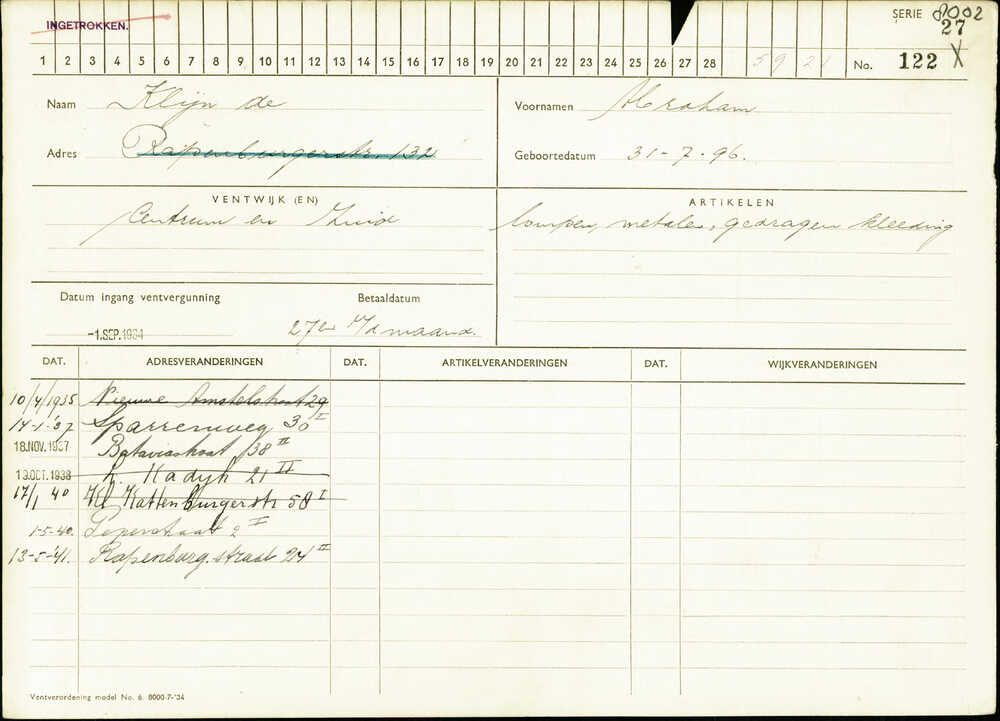 INGETROKKEN.
SERIE 8002
27
1 2 3 4 5 6 7 8 9 10 11 12 13 14 15 16 17 18 19 20 21 22 23 24 25 26 27 28 59 21 No. 122 X
Naam Klijn de
Voornamen Abraham
Adres Rapenburgerstr. 132
Geboortedatum 31-7-96.
VENTWIJK (EN)
Centrum en Zuid
ARTIKELEN
lompen, metalen, gedragen kleeding
Datum ingang ventvergunning
-1.SEP.1934
Betaaldatum
27en v/d maand.
DAT. ADRESVERANDERINGEN DAT. ARTIKELVERANDERINGEN DAT. WIJKVERANDERINGEN
10/4/1935 Nieuwe Amstelstraat 29
14-1-'37 Sparrenweg 30 I
18.NOV.1937 Bataviastraat 38 II
19.OCT.1938 L. Kadijk 21 II
17/1 40 Kl Kattenburgerstr 58 I
1-5-40. Peperstraat 2 I
13-5-'41. Rapenburg.straat 24 II
Ventverordening model No. 6. 8000-7-'34